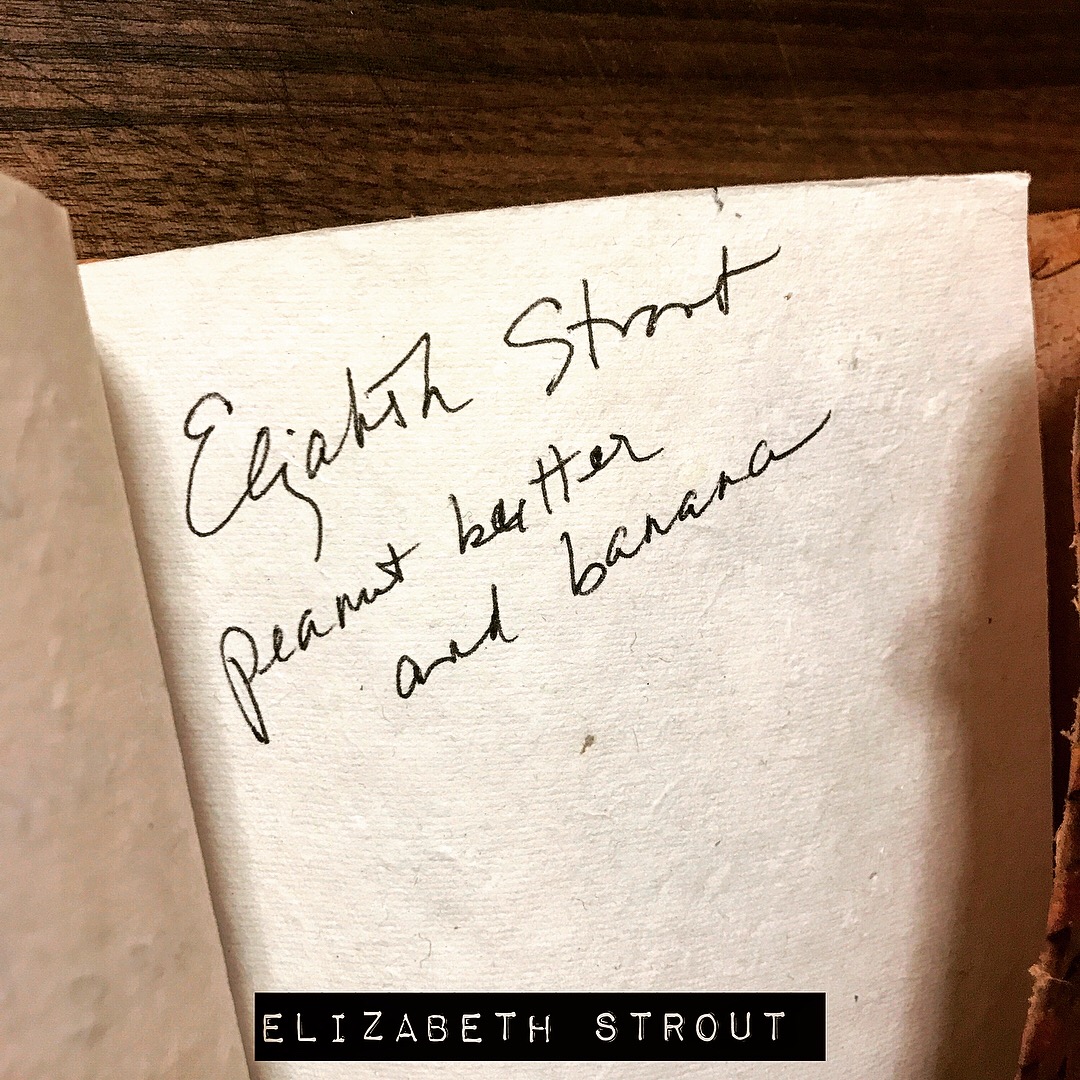 Elizabeth Strout
peanut butter
and banana
ELIZABETH STROUT